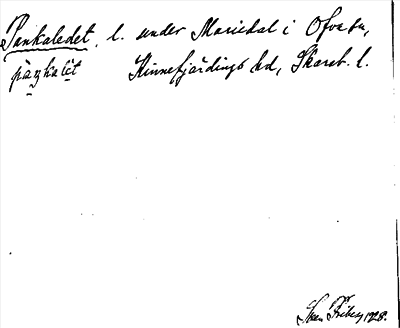 Pankaledet, l. under Mariedal i Ova sn,
paŋkalet Kinnefjärdings hd, Skarab. l.
Sven Friberg 1928.